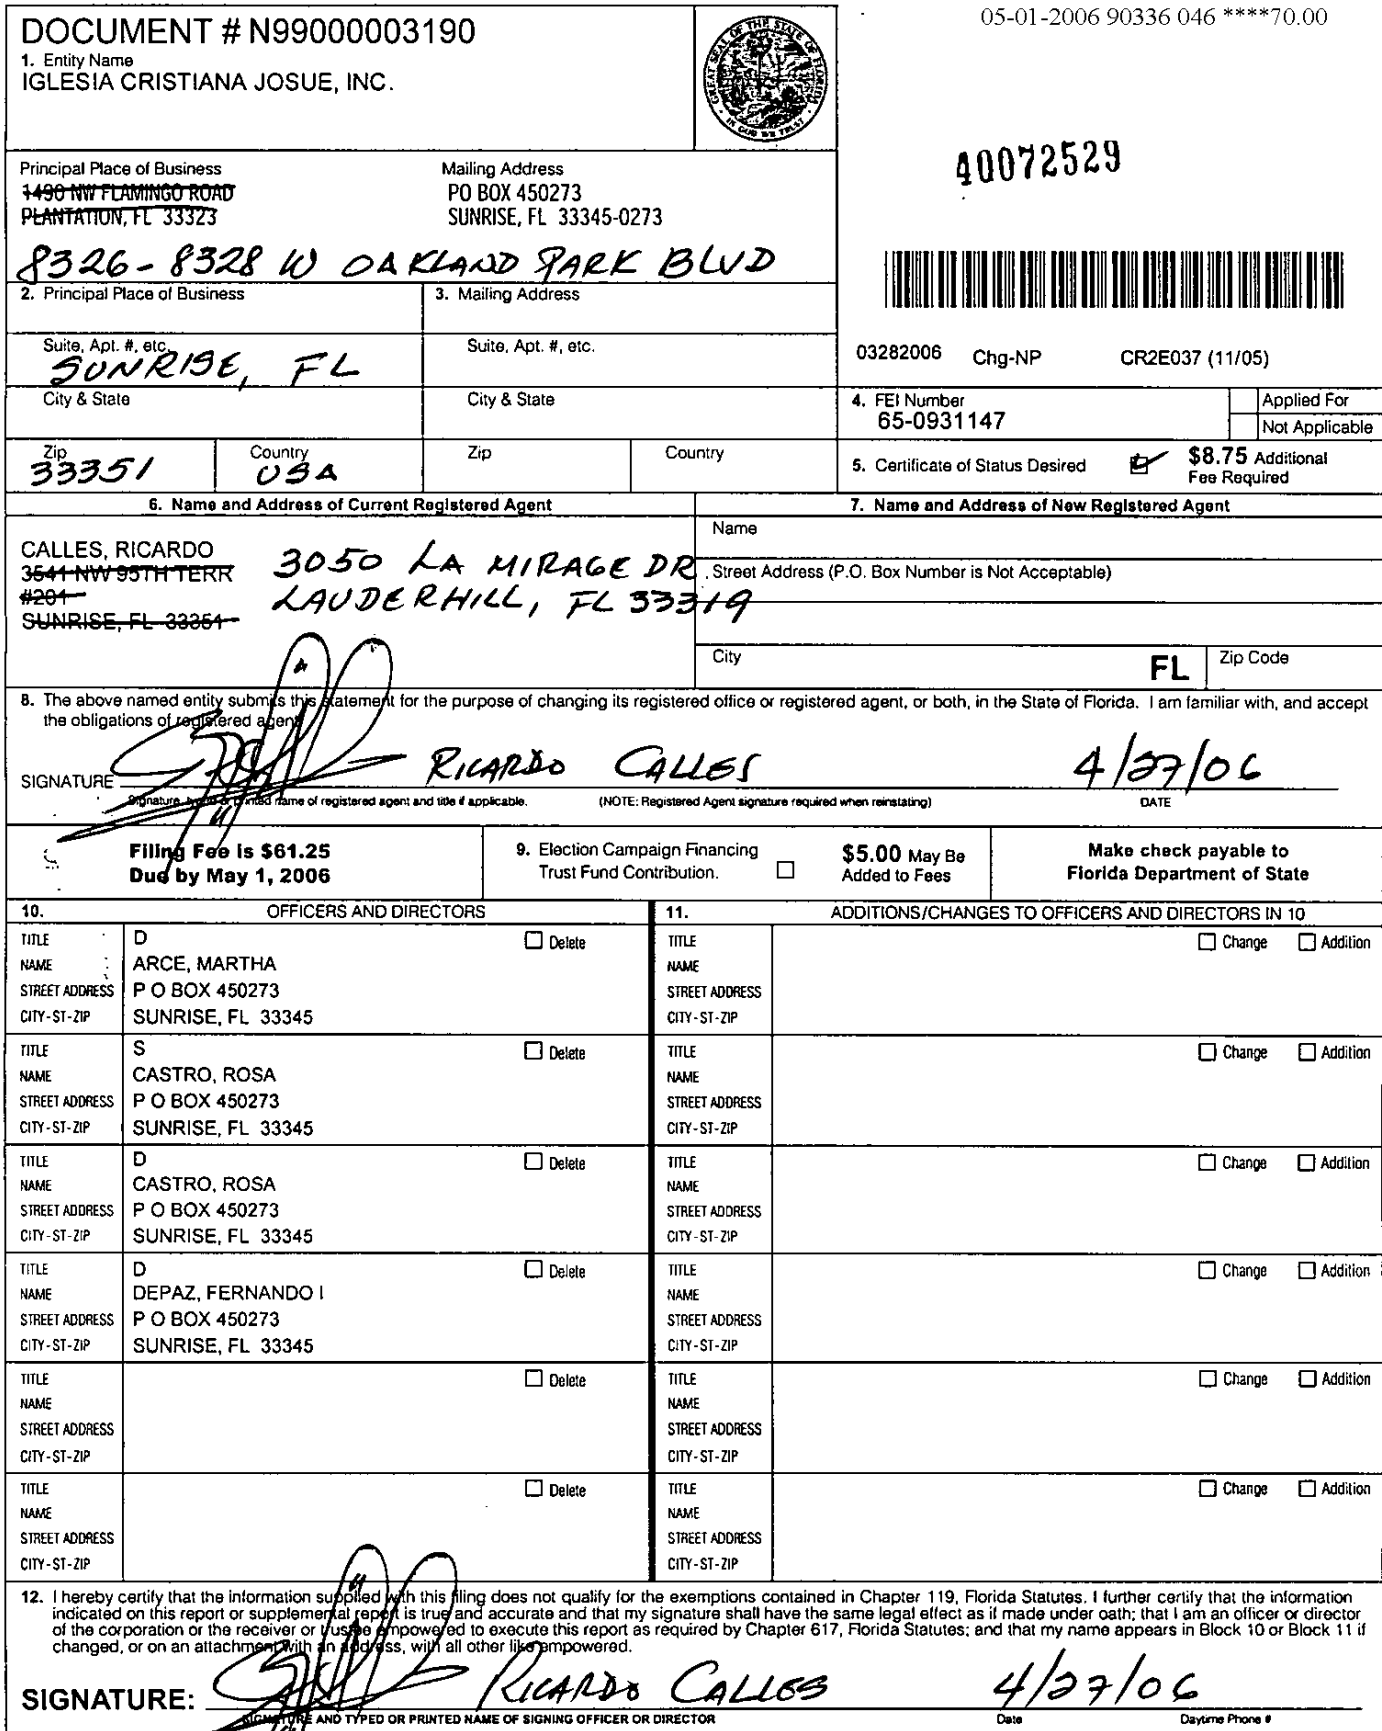 05-01-2006 90336 046 ****70.00
DOCUMENT # N99000003190
1. Entity Name
IGLESIA CRISTIANA JOSUE, INC.
GREAT SEAL OF THE STATE OF FLORIDA
IN GOD WE TRUST
40072529
Principal Place of Business
1490 NW FLAMINGO ROAD
PLANTATION, FL 33323
Mailing Address
PO BOX 450273
SUNRISE, FL 33345-0273
8326-8328 W OAKLAND PARK BLVD
2. Principal Place of Business
3. Mailing Address
Suite, Apt. #, etc.
SUNRISE, FL
Suite, Apt. #, etc.
03282006 Chg-NP CR2E037 (11/05)
City & State
City & State
4. FEI Number
65-0931147
Applied For
Not Applicable
Zip
33351
Country
USA
Zip
Country
5. Certificate of Status Desired
$8.75 Additional
Fee Required
6. Name and Address of Current Registered Agent
7. Name and Address of New Registered Agent
CALLES, RICARDO
3541 NW 95TH TERR
#201
SUNRISE, FL 33351
3050 LA MIRAGE DR
LAUDERHILL, FL 33319
Name
Street Address (P.O. Box Number is Not Acceptable)
City
FL
Zip Code
8. The above named entity submits this statement for the purpose of changing its registered office or registered agent, or both, in the State of Florida. I am familiar with, and accept
the obligations of registered agent.
SIGNATURE RICARDO CALLES 4/27/06
Signature, typed or printed name of registered agent and title if applicable. (NOTE: Registered Agent signature required when reinstating) DATE
Filing Fee is $61.25
Due by May 1, 2006
9. Election Campaign Financing
Trust Fund Contribution.
$5.00 May Be
Added to Fees
Make check payable to
Florida Department of State
10. OFFICERS AND DIRECTORS
11. ADDITIONS/CHANGES TO OFFICERS AND DIRECTORS IN 10
TITLE D Delete
NAME ARCE, MARTHA
STREET ADDRESS P O BOX 450273
CITY-ST-ZIP SUNRISE, FL 33345
TITLE Change Addition
NAME
STREET ADDRESS
CITY-ST-ZIP
TITLE S Delete
NAME CASTRO, ROSA
STREET ADDRESS P O BOX 450273
CITY-ST-ZIP SUNRISE, FL 33345
TITLE Change Addition
NAME
STREET ADDRESS
CITY-ST-ZIP
TITLE D Delete
NAME CASTRO, ROSA
STREET ADDRESS P O BOX 450273
CITY-ST-ZIP SUNRISE, FL 33345
TITLE Change Addition
NAME
STREET ADDRESS
CITY-ST-ZIP
TITLE D Delete
NAME DEPAZ, FERNANDO I
STREET ADDRESS P O BOX 450273
CITY-ST-ZIP SUNRISE, FL 33345
TITLE Change Addition
NAME
STREET ADDRESS
CITY-ST-ZIP
TITLE Delete
NAME
STREET ADDRESS
CITY-ST-ZIP
TITLE Change Addition
NAME
STREET ADDRESS
CITY-ST-ZIP
TITLE Delete
NAME
STREET ADDRESS
CITY-ST-ZIP
TITLE Change Addition
NAME
STREET ADDRESS
CITY-ST-ZIP
12. I hereby certify that the information supplied with this filing does not qualify for the exemptions contained in Chapter 119, Florida Statutes. I further certify that the information
indicated on this report or supplemental report is true and accurate and that my signature shall have the same legal effect as if made under oath; that I am an officer or director
of the corporation or the receiver or trustee empowered to execute this report as required by Chapter 617, Florida Statutes; and that my name appears in Block 10 or Block 11 if
changed, or on an attachment with an address, with all other like empowered.
SIGNATURE: RICARDO CALLES 4/27/06
SIGNATURE AND TYPED OR PRINTED NAME OF SIGNING OFFICER OR DIRECTOR Date Daytime Phone #